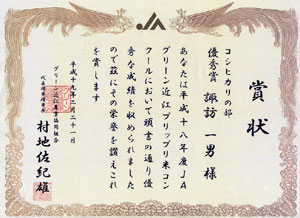 JA
賞状
コシヒカリの部
優秀賞 諏訪一男様
あなたは平成十八年度JA
グリーン近江プリップリ米コン
クールにおいて頭書の通り優
秀な成績を収められました
ので茲にその栄誉を讃えこれ
を賞します
平成十九年二月二十一日
グリーン近江農業協同組合
代表理事理事長
村地佐紀雄